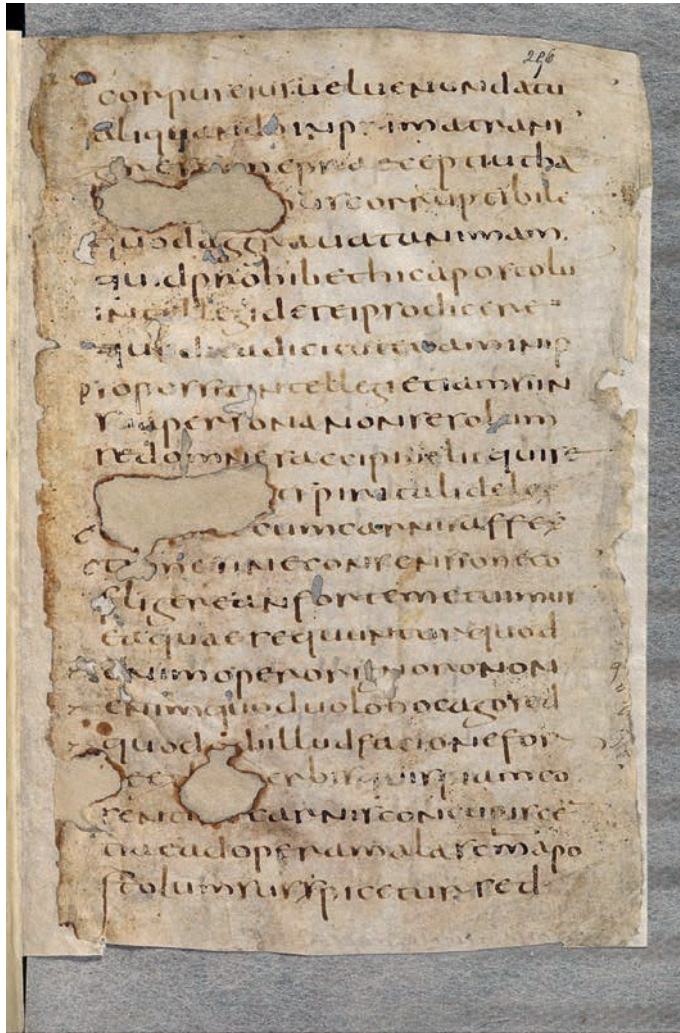 206
corpore eius uel uenundatu
aliquando in prima transi
corruptibile
quod aggrauat animam.
quid prohibet hic apostolu
intellegi de se ipso dicere
quod ita dicit ut etiam in ip
so possit intellegi etiam si in
sua persona non se solum
sed omnes accipi uelit qui se
spiritali delec
cum carnis affec
tione sine consensione co
fligere an forte metuimus
ea quae sequuntur quod
enim operor ignoro non
enim quod uolo hoc ago sed
quod odi illud facio ne for
erbis quispiam co
senti carnis concupisce
tiae ad opera mala scm apo
stolum suspicetur sed